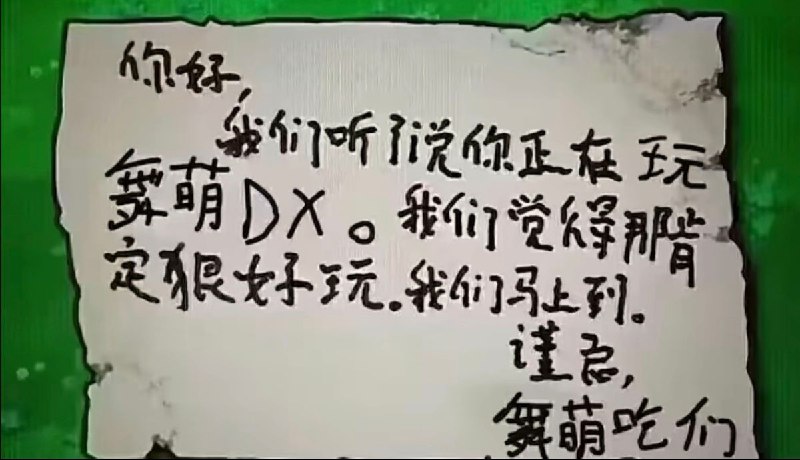 你好,
我们听了说你正在玩
舞萌DX。我们觉得那肯
定狠好玩.我们马上到。
谨启,
舞萌吃们